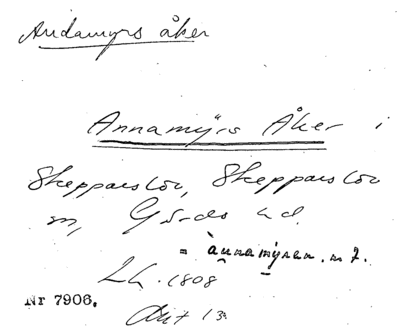 Andamyrs åker
Annamyrs Åker i
Skepparslöv, Skepparslöv
sn, Gärds hd.
= annamýren. n 7.
LL. 1808
Nr 7906.
Akt 13